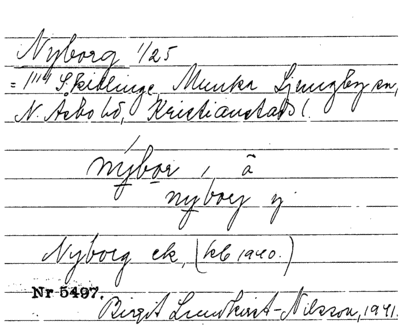 Nyborg 1/25
= 1"" S. kiblinge, Munka Ljungby sn,
N. Åsbo hd, Kristianstads l.
nybor, â
nybory y
Nyborg ek, (kb 1940.)
Nr 5497.
Birgit Lundkvist-Nilsson, 1941.